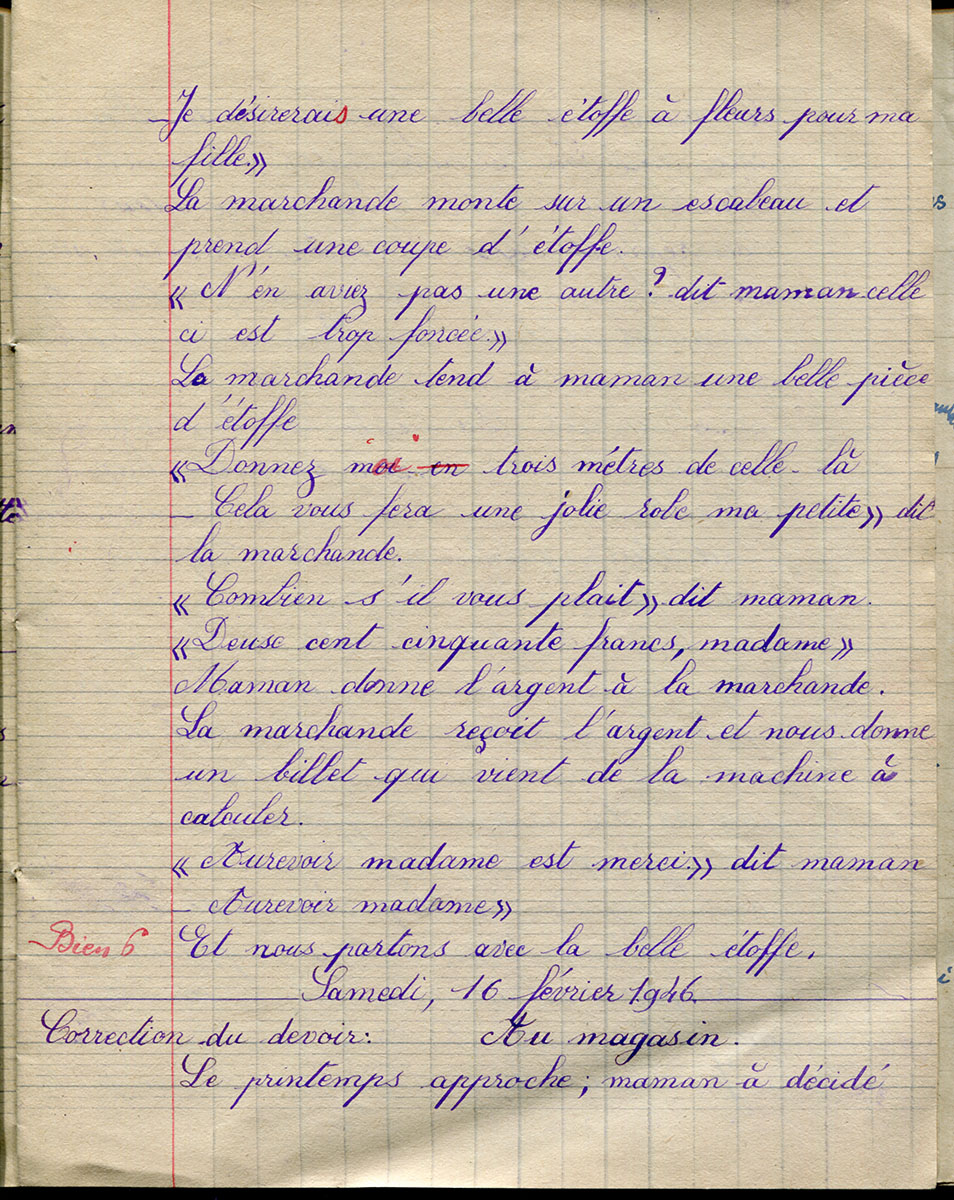 – Je désirerais une belle étoffe à fleurs pour ma
fille.»
La marchande monte sur un escabeau et
prend une coupe d'étoffe.
« N'en aviez pas une autre ? dit maman celle
ci est trop foncée.»
La marchande tend à maman une belle pièce
d'étoffe
« Donnez moi en trois mètres de celle-là
– Cela vous fera une jolie robe ma petite» dit
la marchande.
« Combien s'il vous plait» dit maman.
« Deux cent cinquante francs, madame»
Maman donne l'argent à la marchande.
La marchande reçoit l'argent et nous donne
un billet qui vient de la machine à
calculer.
« Aurevoir madame est merci.» dit maman
– Aurevoir madame»
Bien 6 Et nous partons avec la belle étoffe.
Samedi, 16 février 1946.
Correction du devoir: Au magasin.
Le printemps approche; maman à décidé